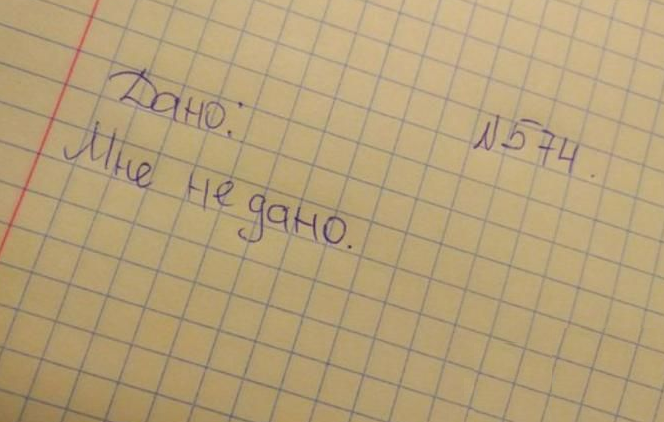 Дано:
№574.
Мне не дано.